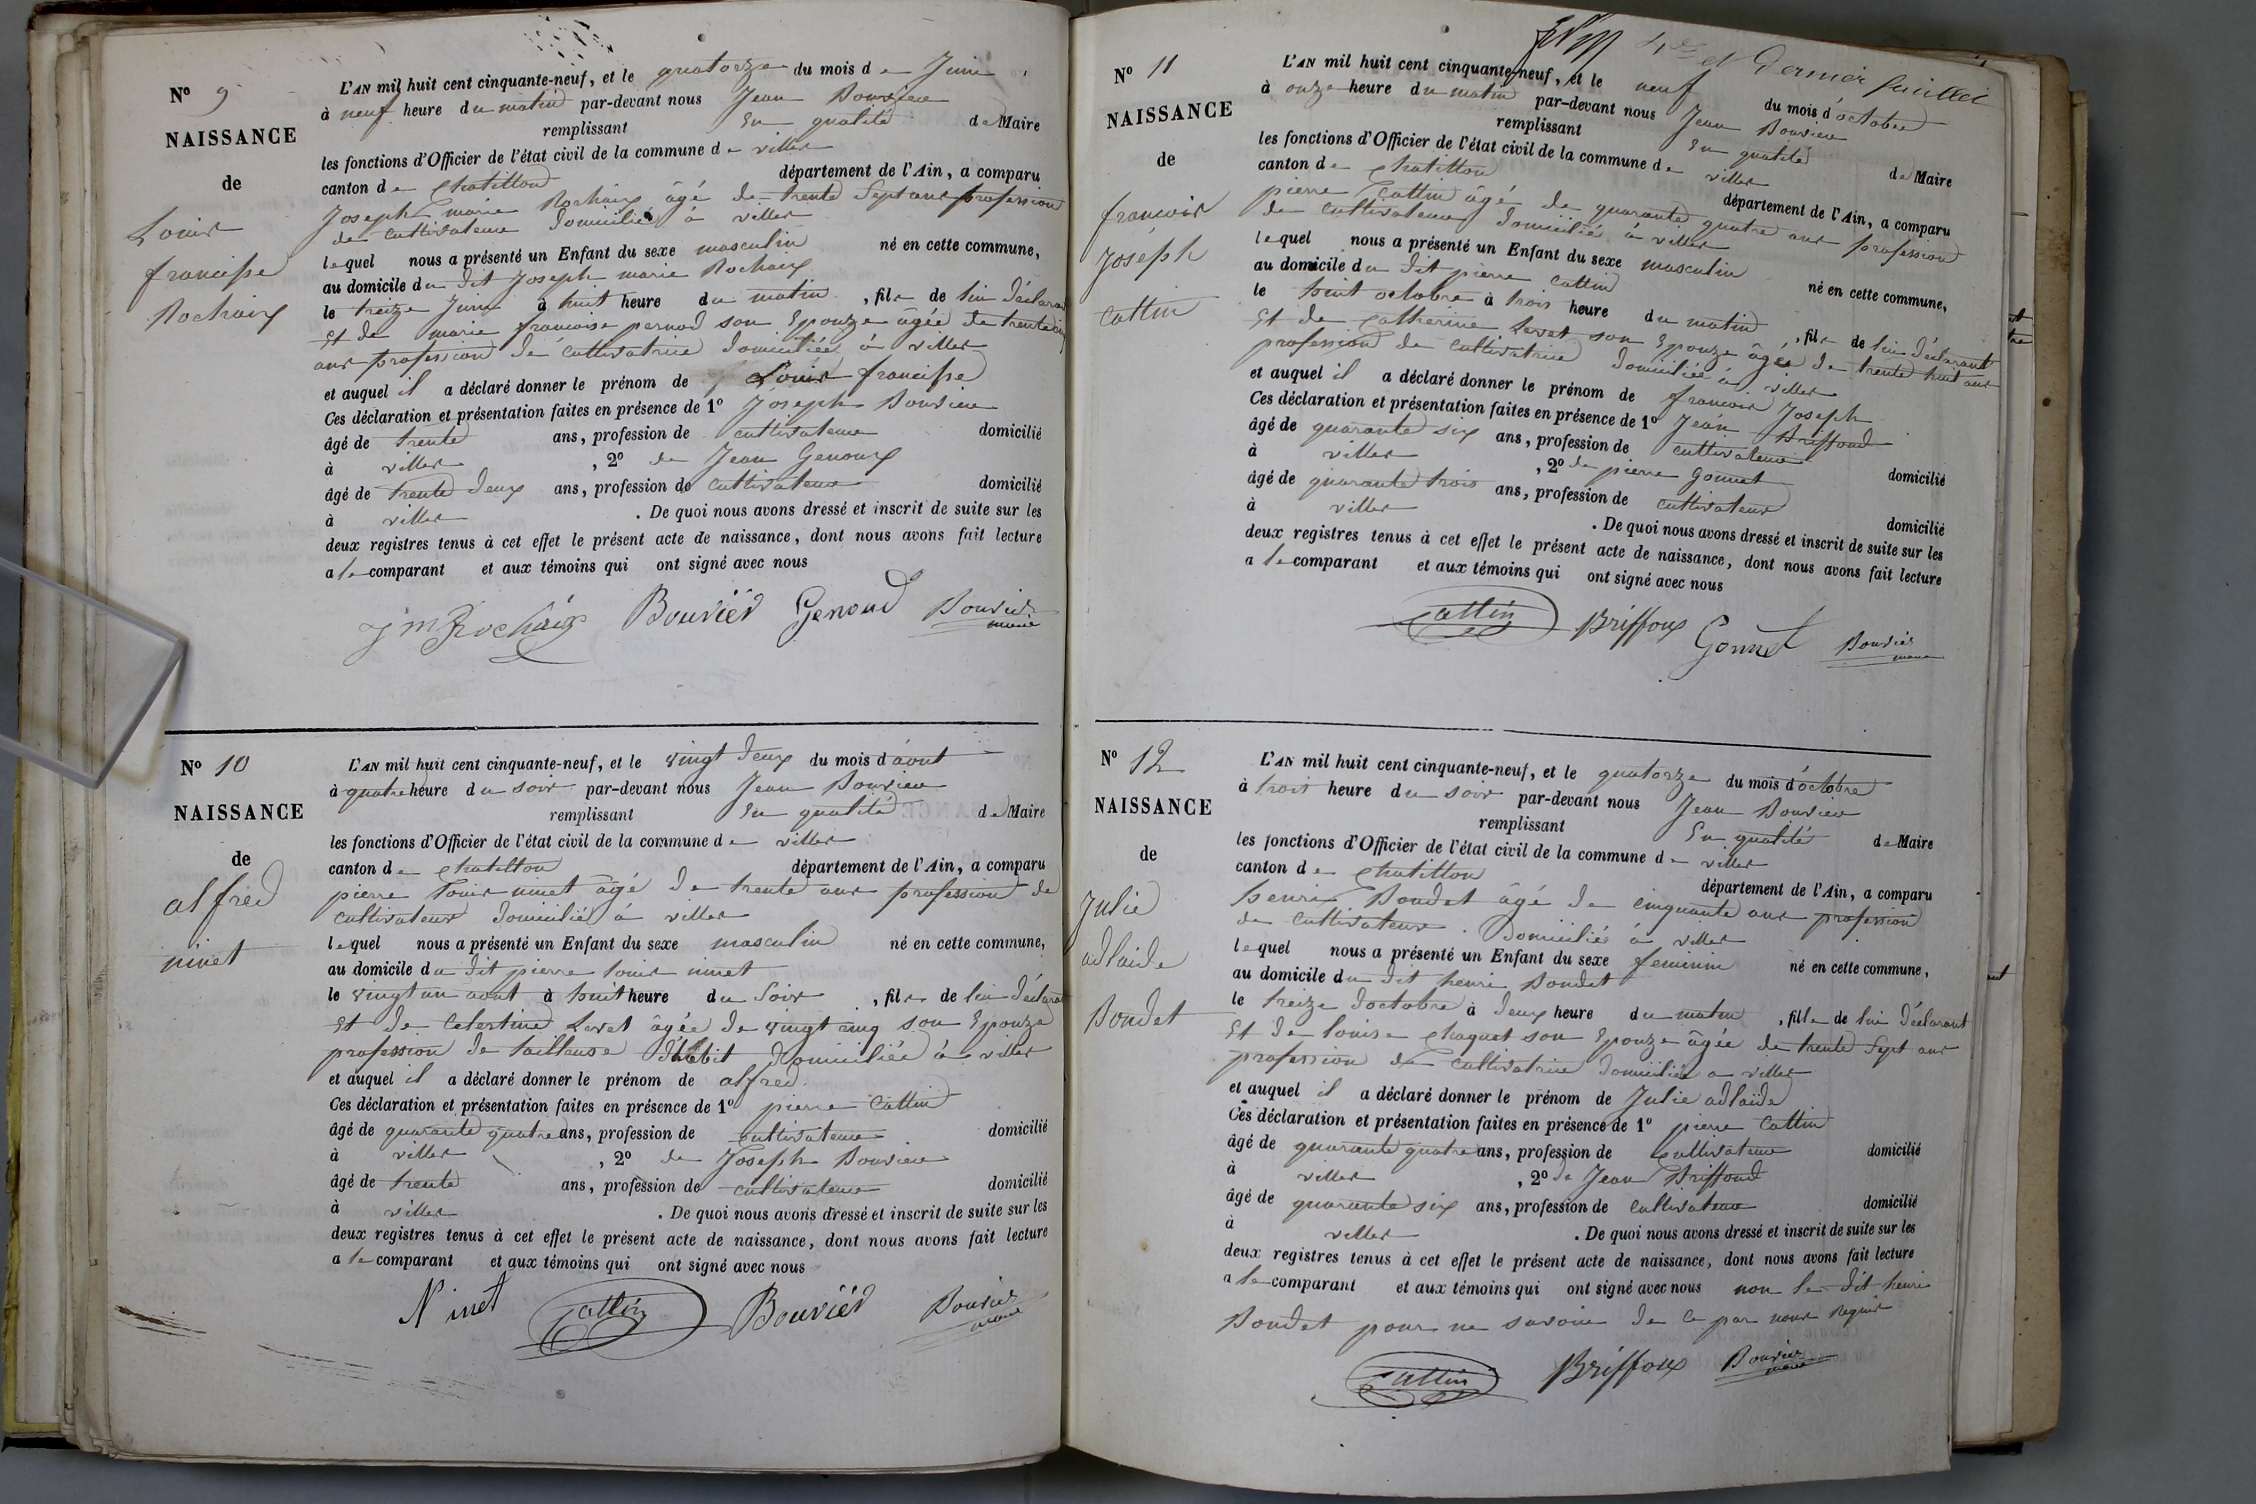 N° 9
NAISSANCE
de
Louis
francisse
Rochaix
L'AN mil huit cent cinquante-neuf, et le quatorze du mois de Juin
à neuf heure du matin par-devant nous Jean Bouvier
remplissant En qualité de Maire
les fonctions d'Officier de l'état civil de la commune de villes
canton de chatillon département de l'Ain, a comparu
Joseph marie Rochaix âgé de trente Sept ans profession
de cultivateur domicilié à villes
lequel nous a présenté un Enfant du sexe masculin né en cette commune,
au domicile du dit Joseph marie Rochaix
le treize Juin à huit heure du matin , fils de lui déclarant
Et de marie francoise pernod son Epouze âgée de trente cinq
ans profession de cultivatrice domiciliée à villes
et auquel il a déclaré donner le prénom de Louis francisse
Ces déclaration et présentation faites en présence de 1° Joseph Bouvier
âgé de trente ans, profession de cultivateur domicilié
à villes , 2° de Jean Genoux
âgé de trente deux ans, profession de cultivateur domicilié
à villes . De quoi nous avons dressé et inscrit de suite sur les
deux registres tenus à cet effet le présent acte de naissance, dont nous avons fait lecture
a le comparant et aux témoins qui ont signé avec nous
J m Rochaix Bouvier Genoud Bouvier
maire
N° 10
NAISSANCE
de
alfred
ninet
L'AN mil huit cent cinquante-neuf, et le vingt deux du mois d'aout
à quatre heure du soir par-devant nous Jean Bouvier
remplissant En qualité de Maire
les fonctions d'Officier de l'état civil de la commune de villes
canton de chatillon département de l'Ain, a comparu
pierre louis ninet âgé de trente ans profession de
cultivateur domicilié à villes
lequel nous a présenté un Enfant du sexe masculin né en cette commune,
au domicile du dit pierre louis ninet
le vingt un aout à huit heure du Soir , fils de lui déclarant
Et de Celestine Levet âgée de vingt cinq son Epouze
profession de tailleuse d'habit Domiciliée à villes
et auquel il a déclaré donner le prénom de alfred
Ces déclaration et présentation faites en présence de 1° pierre Cattin
âgé de quarante quatre ans, profession de cultivateur domicilié
à villes , 2° de Joseph Bouvier
âgé de trente ans, profession de cultivateur domicilié
à villes . De quoi nous avons dressé et inscrit de suite sur les
deux registres tenus à cet effet le présent acte de naissance, dont nous avons fait lecture
a le comparant et aux témoins qui ont signé avec nous
Ninet Cattin Bouvier Bouvier
maire
et Dernier feuillet
N° 11
NAISSANCE
de
francois
Joseph
Cattin
L'AN mil huit cent cinquante-neuf, et le neuf du mois d'octobre
à onze heure du matin par-devant nous Jean Bouvier
remplissant En qualité de Maire
les fonctions d'Officier de l'état civil de la commune de villes
canton de chatillon département de l'Ain, a comparu
pierre Cattin âgé de quarante quatre ans profession
de cultivateur domicilié à villes
lequel nous a présenté un Enfant du sexe masculin né en cette commune,
au domicile du dit pierre Cattin
le huit octobre à trois heure du matin , fils de lui déclarant
Et de Catherine Levet son Epouze âgée de trente huit ans
profession de cultivatrice domiciliée à villes
et auquel il a déclaré donner le prénom de francois Joseph
Ces déclaration et présentation faites en présence de 1° Jean Briffoud
âgé de quarante six ans, profession de cultivateur domicilié
à villes , 2° de pierre Gonnet
âgé de quarante trois ans, profession de cultivateur domicilié
à villes . De quoi nous avons dressé et inscrit de suite sur les
deux registres tenus à cet effet le présent acte de naissance, dont nous avons fait lecture
a le comparant et aux témoins qui ont signé avec nous
Cattin Briffoux Gonnet Bouvier
maire
N° 12
NAISSANCE
de
Julie
adlaide
Bondet
L'AN mil huit cent cinquante-neuf, et le quatorze du mois d'octobre
à trois heure du soir par-devant nous Jean Bouvier
remplissant En qualité de Maire
les fonctions d'Officier de l'état civil de la commune de villes
canton de chatillon département de l'Ain, a comparu
henri Bondet âgé de cinquante ans profession
de cultivateur Domicilié à villes
lequel nous a présenté un Enfant du sexe feminin né en cette commune,
au domicile du dit henri Bondet
le treize d'octobre à deux heure du matin , fille de lui déclarant
Et de louise chaquet son Epouze âgée de trente Sept ans
profession de cultivatrice domiciliée a villes
et auquel il a déclaré donner le prénom de Julie adlaide
Ces déclaration et présentation faites en présence de 1° pierre Cattin
âgé de quarante quatre ans, profession de cultivateur domicilié
à villes , 2° de Jean Briffoud
âgé de quarante six ans, profession de cultivateur domicilié
à villes . De quoi nous avons dressé et inscrit de suite sur les
deux registres tenus à cet effet le présent acte de naissance, dont nous avons fait lecture
a le comparant et aux témoins qui ont signé avec nous non le dit henri
Bondet pour ne savoir de ce par nous requis
Cattin Briffoux Bouvier
maire